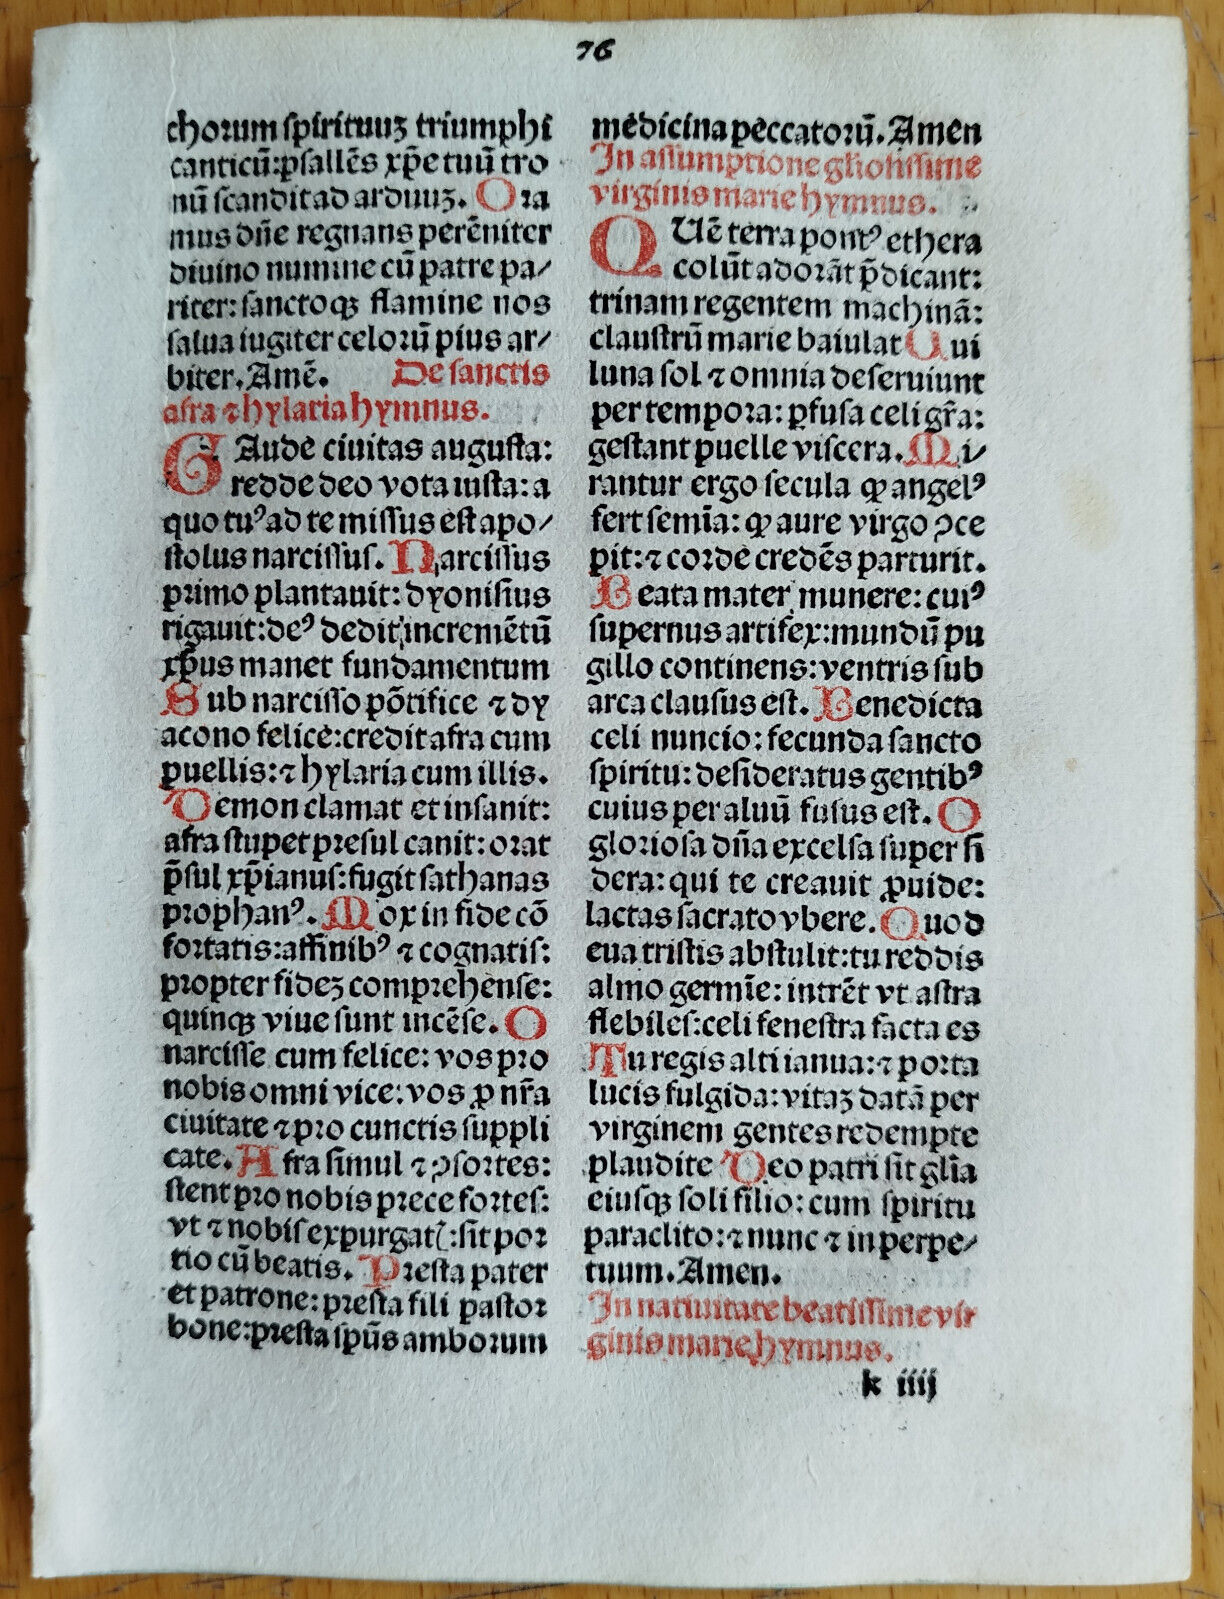 76
chorum spirituuꝫ triumphi
canticū:psallēs xp̄e tuū tro
nū scandit ad arduuꝫ. Ora
mus dn̄e regnans perēniter
diuino numine cū patre pa/
riter: sanctoqꝫ flamine nos
salua iugiter celorū pius ar/
biter. Amē. De sanctis
afra ⁊ hylaria hymnus.
GAude ciuitas augusta:
redde deo vota iusta: a
quo tuꝰ ad te missus est apo/
stolus narcissus. Narcissus
primo plantauit: dyonisius
rigauit: deꝰ dedit incremētū
xp̄us manet fundamentum
Sub narcisso pōtifice ⁊ dy
acono felice: credit afra cum
puellis: ⁊ hylaria cum illis.
Demon clamat et insanit:
afra stupet presul canit: orat
p̄sul xp̄ianus: fugit sathanas
prophanꝰ. Mox in fide cō
fortatis: affinibꝰ ⁊ cognatis:
propter fideꝫ comprehense:
quinqꝫ viue sunt incēse. O
narcisse cum felice: vos pro
nobis omni vice: vos ꝓ nr̄a
ciuitate ⁊ pro cunctis suppli
cate. Afra simul ⁊ ꝯsortes:
stent pro nobis prece fortes:
vt ⁊ nobis expurgat᷑: sit por
tio cū beatis. Presta pater
et patrone: presta fili pastor
bone: presta sp̄us amborum
medicina peccatorū. Amen
In assumptione gl̄iosissime
virginis marie hymnus.
QUē terra pontꝰ ethera
colūt adorāt p̄dicant:
trinam regentem machinā:
claustrū marie baiulat Cui
luna sol ⁊ omnia deseruiunt
per tempora: ꝑfusa celi gr̄a:
gestant puelle viscera. Mi/
rantur ergo secula ꝙ angelꝰ
fert semīa: ꝙ aure virgo ꝯce
pit: ⁊ corde credēs parturit.
Beata mater munere: cuiꝰ
supernus artifex: mundū pu
gillo continens: ventris sub
arca clausus est. Benedicta
celi nuncio: fecunda sancto
spiritu: desideratus gentibꝰ
cuius per aluū fusus est. O
gloriosa dn̄a excelsa super si
dera: qui te creauit ꝓuide:
lactas sacrato vbere. Quod
eua tristis abstulit: tu reddis
almo germīe: intrēt vt astra
flebiles: celi fenestra facta es
Tu regis alti ianua: ⁊ porta
lucis fulgida: vitaꝫ datā per
virginem gentes redempte
plaudite Deo patri sit gl̄ia
eiusqꝫ soli filio: cum spiritu
paraclito: ⁊ nunc ⁊ in perpe/
tuum. Amen.
In natiuitate beatissime vir
ginis marie hymnus.
k iiij